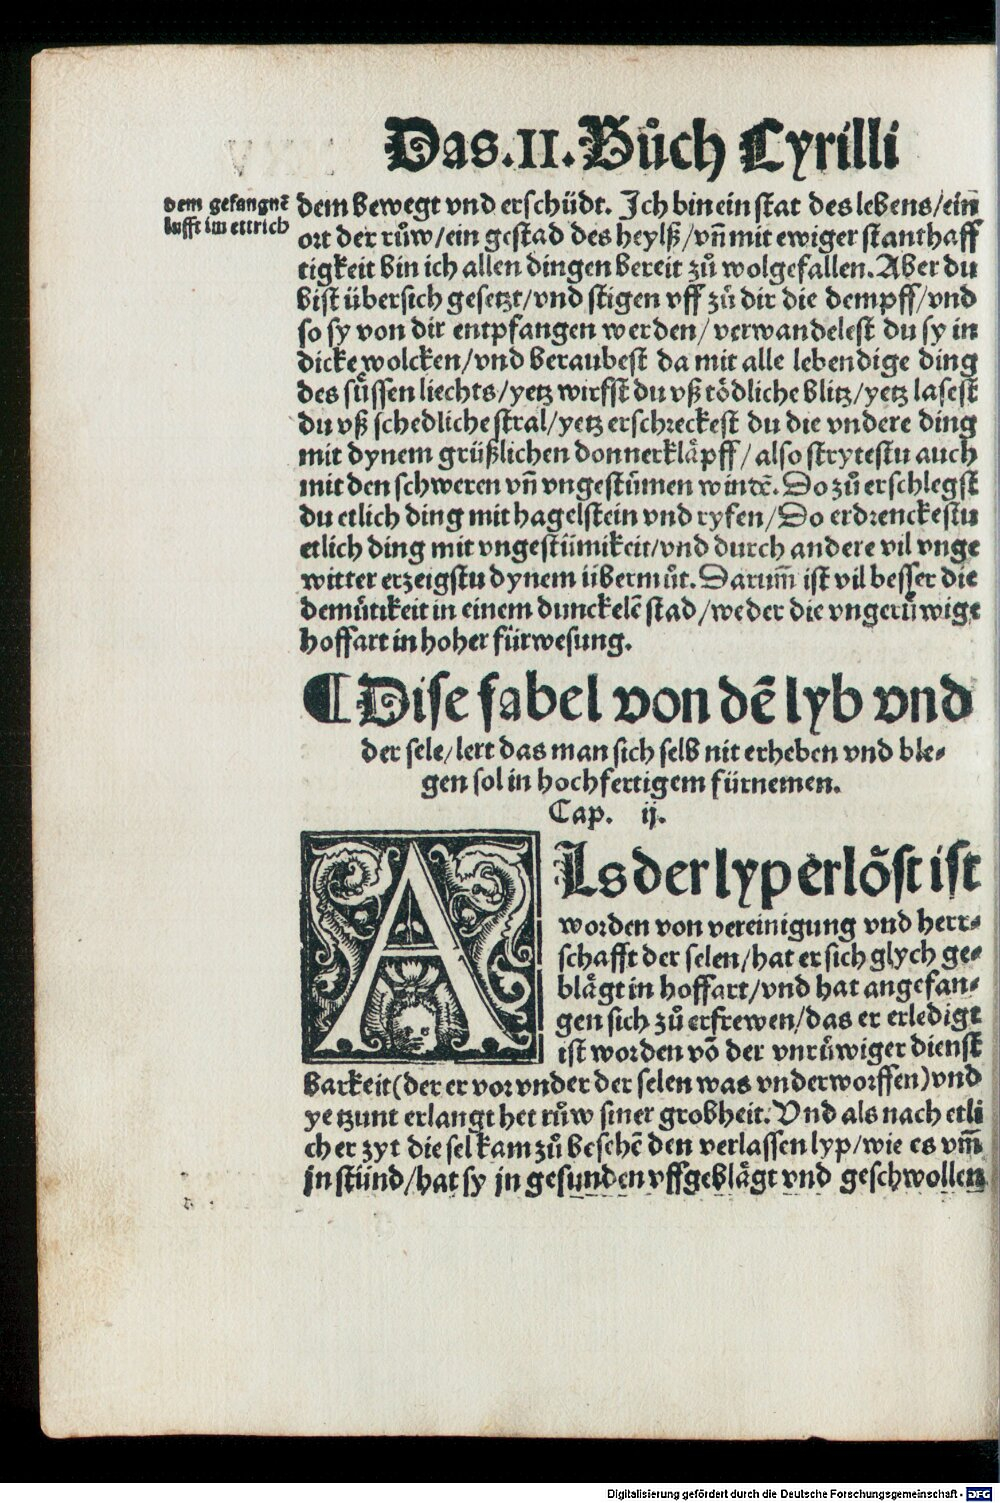 Das.II.Bůch Cyrilli
dem gefangnē
lufft im ertrich
dem bewegt vnd erschüdt. Ich bin ein stat des lebens/ein
ort der růw/ein gestad des heylß/vn̄ mit ewiger stanthaff
tigkeit bin ich allen dingen bereit zů wolgefallen. Aber du
bist übersich gesetzt/vnd stigen vff zů dir die dempff/vnd
so sy von dir entpfangen werden/verwandelest du sy in
dicke wolcken/vnd beraubest da mit alle lebendige ding
des sůssen liechts/yetz wirfst du vß tödliche blitz/yetz lasest
du vß schedliche stral/yetz erschreckest du die vndere ding
mit dynem grüßlichen donnerkläpff/also strytestu auch
mit den schweren vn̄ vngestůmen windē. Do zů erschlegst
du etlich ding mit hagelstein vnd ryfen/Do erdrenckestu
etlich ding mit vngestümikeit/vnd durch andere vil vnge
witter erzeigstu dynem übermůt. Darum̄ ist vil besser die
demůtikeit in einem dunckelē stad/weder die vngerůwige
hoffart in hoher fürwesung.
¶Dise fabel von dē lyb vnd
der sele/lert das man sich selb nit erheben vnd ble⸗
gen sol in hochfertigem fürnemen.
Cap. ij.
ALs der lyp erlöst ist
worden von vereinigung vnd herr⸗
schafft der selen/hat er sich glych ge⸗
blägt in hoffart/vnd hat angefan⸗
gen sich zů erfrewen/das er erledigt
ist worden vō der vnrůwiger dienst
barkeit(der er vor vnder der selen was vnderworffen)vnd
yetzunt erlangt het růw siner grobheit. Vnd als nach etli
cher zyt die sel kam zů besehē den verlassen lyp/wie es vm̄
jn stünd/hat sy jn gesunden vffgeblägt vnd geschwollen
Digitalisierung gefördert durch die Deutsche Forschungsgemeinschaft - DFG